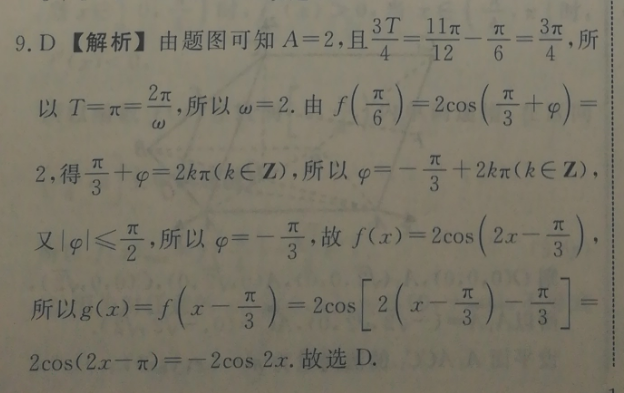 9. D 【解析】 由题图可知 A=2,且3T/4=11π/12-π/6=3π/4,所
以 T=π=2π/ω,所以 ω=2. 由 f(π/6)=2cos(π/3+φ)=
2,得π/3+φ=2kπ(k∈Z),所以 φ=-π/3+2kπ(k∈Z),
又|φ|≤π/2,所以 φ=-π/3,故 f(x)=2cos(2x-π/3),
所以g(x)=f(x-π/3)=2cos[2(x-π/3)-π/3]=
2cos(2x-π)=-2cos 2x. 故选 D.